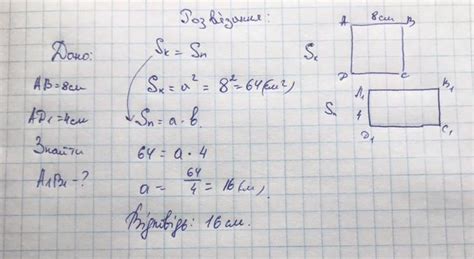 Розвязання:
Дано:
AB = 8см
AD₁ = 4см
Знайти
A₁B₁ - ?
Sк = Sп
Sк = a² = 8² = 64(см²)
Sп = a · b.
64 = a · 4
a = 64/4 = 16(см)
Відповідь: 16 см.
A 8см B
Sк
D C
A₁ B₁
Sп 4
D₁ C₁